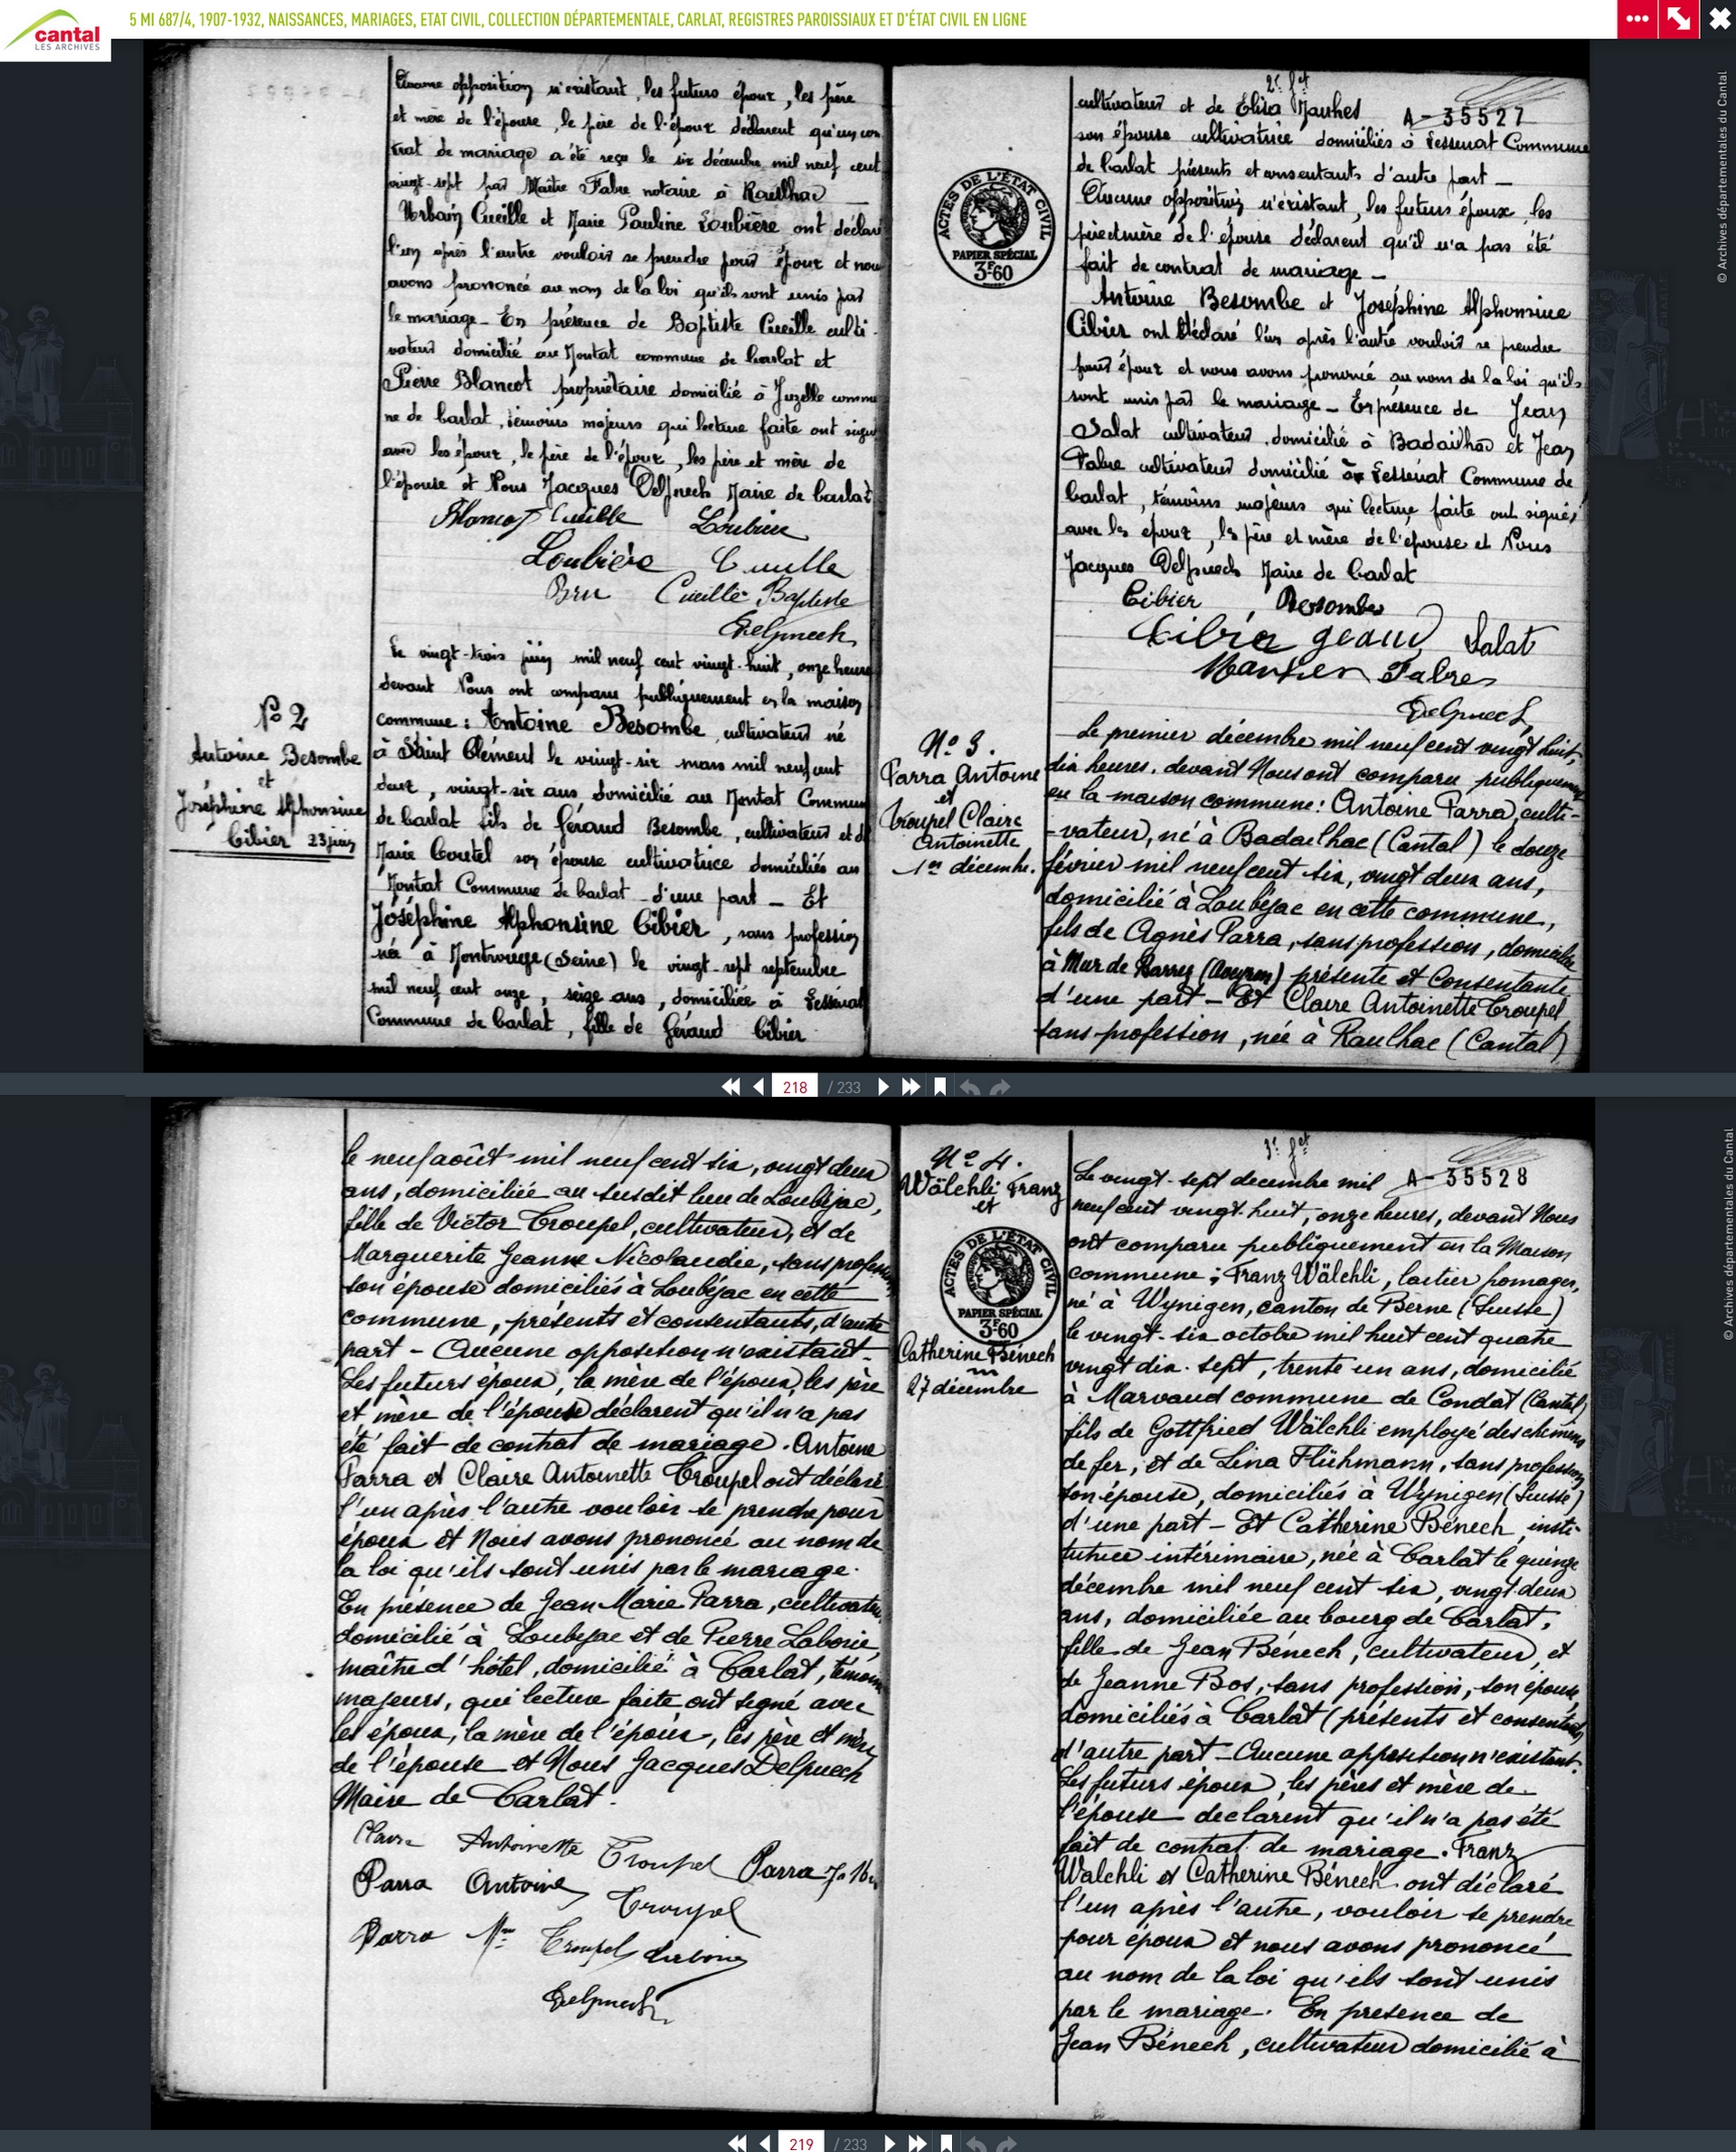 cantal
LES ARCHIVES
5 MI 687/4, 1907-1932, NAISSANCES, MARIAGES, ETAT CIVIL, COLLECTION DÉPARTEMENTALE, CARLAT, REGISTRES PAROISSIAUX ET D'ÉTAT CIVIL EN LIGNE
© Archives départementales du Cantal
Aucune opposition n'existant, les futurs époux, les père
et mère de l'épouse, le père de l'époux déclarent qu'un con
trat de mariage a été reçu le six décembre mil neuf cent
vingt-sept par Maître Fabre notaire à Raulhac
Urbain Cueille et Marie Pauline Loubière ont déclaré
l'un après l'autre vouloir se prendre pour époux et nous
avons prononcé au nom de la loi qu'ils sont unis par
le mariage - En présence de Baptiste Cueille culti-
vateur domicilié au Montat commune de Carlat et
Pierre Blancot propriétaire domicilié à Juzelle commu
ne de Carlat, témoins majeurs qui lecture faite ont signé
avec les époux, le père de l'époux, les père et mère de
l'épouse et Nous Jacques Delpuech Maire de Carlat
Blancot Cueille Loubière
Loubière Cueille
Bru Cueille Baptiste
Delpuech
N° 2
Antoine Besombe
et
Joséphine Alphonsine
Cibier 23 juin
Le vingt-trois juin mil neuf cent vingt-huit, onze heures
devant Nous ont comparu publiquement en la maison
commune : Antoine Besombe, cultivateur né
à Saint Clément le vingt-six mars mil neuf cent
deux, vingt-six ans domicilié au Montat Commune
de Carlat fils de Géraud Besombe, cultivateur et de
Marie Coutel son épouse cultivatrice domiciliés au
Montat Commune de Carlat - d'une part - Et
Joséphine Alphonsine Cibier, sans profession
née à Montrouge (Seine) le vingt-sept septembre
mil neuf cent onze, seize ans, domiciliée à Lessenat
Commune de Carlat, fille de Géraud Cibier
2e fet
A-35527
cultivateur et de Elisa Manhes
son épouse cultivatrice domiciliés à Lessenat Commune
de Carlat présents et consentants d'autre part -
Aucune opposition n'existant, les futurs époux, les
père et mère de l'épouse déclarent qu'il n'a pas été
fait de contrat de mariage -
Antoine Besombe et Joséphine Alphonsine
Cibier ont déclaré l'un après l'autre vouloir se prendre
pour époux et nous avons prononcé au nom de la loi qu'ils
sont unis par le mariage - En présence de Jean
Salat cultivateur domicilié à Badailhac et Jean
Fabre cultivateur domicilié à Lessenat Commune de
Carlat, témoins majeurs qui lecture faite ont signés
avec les epoux, les père et mère de l'épouse et Nous
Jacques Delpuech Maire de Carlat
ACTES DE L'ÉTAT CIVIL
PAPIER SPÉCIAL
3F60
Cibier Besombe
Cibier geaud Salat
Manhes Fabre
Delpuech
N° 3.
Parra Antoine
et
Troupel Claire
Antoinette
1er décembre.
Le premier décembre mil neuf cent vingt huit,
dix heures, devant Nous ont comparu publiquement
en la maison commune : Antoine Parra, culti-
-vateur, né à Badailhac (Cantal) le douze
février mil neuf cent six, vingt deux ans,
domicilié à Loubéjac en cette commune,
fils de Agnès Parra, sans profession, domiciliée
à Mur de Barrez (Aveyron) présente et Consentante
d'une part - Et Claire Antoinette Troupel
sans profession, née à Raulhac (Cantal)
218 / 233
le neuf août mil neuf cent six, vingt deux
ans, domiciliée au susdit lieu de Loubéjac,
fille de Victor Troupel, cultivateur, et de
Marguerite Jeanne Nicolaudie, sans profession
son épouse domiciliés à Loubéjac en cette
commune, présents et consentants, d'autre
part - Aucune opposition n'existant -
Les futurs époux, la mère de l'époux, les père
et mère de l'épouse déclarent qu'il n'a pas
été fait de contrat de mariage. Antoine
Parra et Claire Antoinette Troupel ont déclaré
l'un après l'autre vouloir se prendre pour
époux et Nous avons prononcé au nom de
la loi qu'ils sont unis par le mariage.
En présence de Jean Marie Parra, cultivateur
domicilié à Loubejac et de Pierre Laborie,
maître d'hôtel, domicilié à Carlat, témoins
majeurs, qui lecture faite ont signé avec
les époux, la mère de l'époux, les père et mère
de l'épouse et Nous Jacques Delpuech
Maire de Carlat.
Claire Antoinette Troupel Parra J. M.
Parra Antoine Troupel
Parra Troupel Laborie
Delpuech
N° 4.
Wälchli Franz
et
ACTES DE L'ÉTAT CIVIL
PAPIER SPÉCIAL
3F60
Catherine Bénech
27 décembre
3e fet
A-35528
Le vingt-sept decembre mil
neuf cent vingt-huit, onze heures, devant Nous
ont comparu publiquement en la Maison
commune : Franz Wälchli, laitier fromager,
né à Wynigen, canton de Berne (Suisse)
le vingt-six octobre mil huit cent quatre
vingt dix-sept, trente un ans, domicilié
à Marvaud commune de Condat (Cantal)
fils de Gottfried Wälchli employé des chemins
de fer, et de Lina Flühmann, sans profession
son épouse, domiciliés à Wynigen (Suisse)
d'une part - Et Catherine Bénech, insti-
tutrice intérimaire, née à Carlat le quinze
décembre mil neuf cent six, vingt deux
ans, domiciliée au bourg de Carlat,
fille de Jean Bénech, cultivateur, et
de Jeanne Bos, sans profession, son épouse,
domiciliés à Carlat (présents et consentants)
d'autre part - Aucune opposition n'existant.
Les futurs époux, les pères et mère de
l'épouse declarent qu'il n'a pas été
fait de contrat de mariage. Franz
Walchli et Catherine Bénech ont déclaré
l'un après l'autre, vouloir se prendre
pour époux et nous avons prononcé
au nom de la loi qu'ils sont unis
par le mariage. En presence de
Jean Bénech, cultivateur domicilié à
© Archives départementales du Cantal
219 / 233